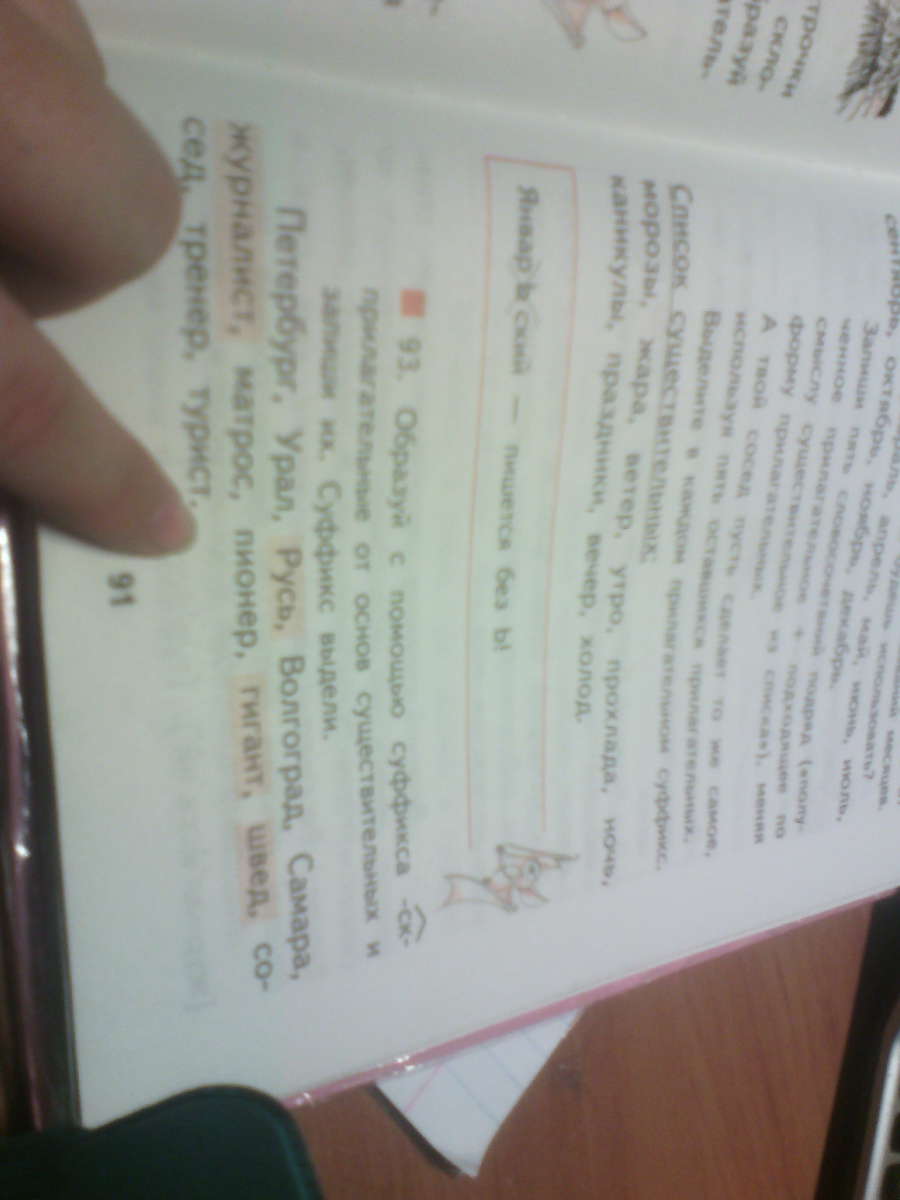 трочки
скло-
разуй
тель-
сентябрь, октябрь, ноябрь, декабрь.
Запиши пять словосочетаний подряд («полу-
ченное прилагательное + подходящее по
смыслу существительное из списка»), меняя
форму прилагательных.
А твой сосед пусть сделает то же самое,
используя пять оставшихся прилагательных.
Выделите в каждом прилагательном суффикс.
Список существительных:
морозы, жара, ветер, утро, прохлада, ночь,
каникулы, праздники, вечер, холод.
Январский — пишется без ь!
93. Образуй с помощью суффикса -ск-
прилагательные от основ существительных и
запиши их. Суффикс выдели.
Петербург, Урал, Русь, Волгоград, Самара,
журналист, матрос, пионер, гигант, швед, со-
сед, тренер, турист.
91